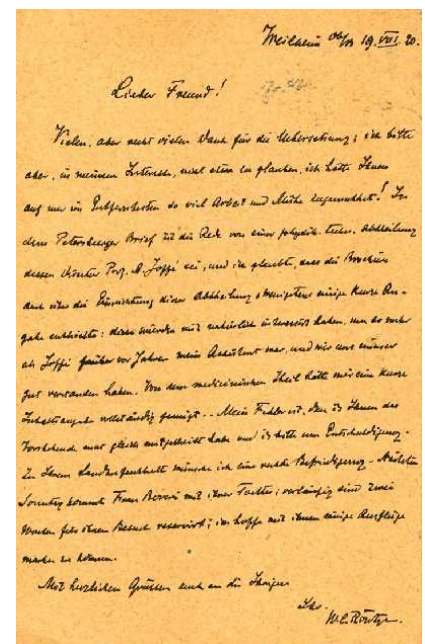 Weilheim o/B 19. VII. 20.
Lieber Freund!
Vielen, aber recht vielen Dank für die Uebersetzung; ich bitte
aber, in meinem Interesse, nicht etwa zu glauben, ich hätte Ihnen
auf nur im Entferntesten so viel Arbeit und Mühe zugemuthet! In
dem Petersburger Brief ist die Rede von einer physik. techn. Abtheilung
dessen Direktor Prof. A. Joffé sei, und ich glaubte, dass die Brochüre
auch über die Einrichtung dieser Abtheilung wenigstens einige kurze An-
gabe enthielte: diese würden mich natürlich interessirt haben, um so mehr
als Joffé früher vor Jahren mein Assistent war, und wir uns immer
gut verstanden haben. Von dem medicinischen Theil hätte mir eine kurze
Inhaltsangabe vollständig genügt. - Mein Fehler ist, dass ich Ihnen das
Vorstehende nicht gleich mitgetheilt habe und ich bitte um Entschuldigung. -
Zu Ihrem Landaufenthalt wünsche ich eine rechte Befriedigung. - Nächsten
Sonntag kommt Frau Boveri mit ihrer Tochter; vorläufig sind zwei
Wochen für ihren Besuch reservirt; ich hoffe mit ihnen einige Ausflüge
machen zu können.
Mit herzlichen Grüssen auch an die Ihrigen
Ihr
W. C. Röntgen.